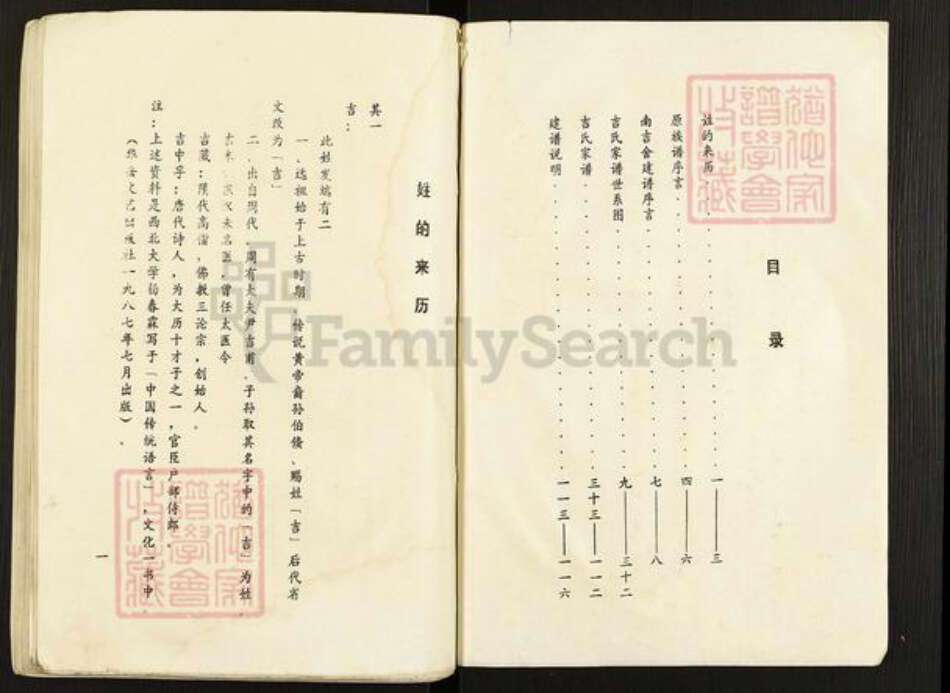 目录
姓的来历..............一——三
原族谱序言..............四——六
南吉舍建谱序言..............七——八
吉氏家谱世系图..............九——三十二
吉氏家谱..............三十三——一一二
建谱说明..............一一三——一一六
姓的来历
其一
吉：
此姓发端有二
一、远祖始于上古时期，传说黄帝裔孙伯倏、赐姓「吉」后代省
文改为「吉」
二、出自周代，周有大夫尹吉甫、子孙取其名字中的「吉」为姓.
吉 名医，曾任太医令
吉藏：隋代高僧，佛教三论宗，创始人。
吉中孚：唐代诗人，为大历十才子之一，官臣户部侍郎。
注：上述资料是西北大学杨春霖写于「中国传统语言」，文化一书中.
文艺出版社一九八七年七月出版）。
一
FamilySearch
谱学会
收藏
谱学会
收藏